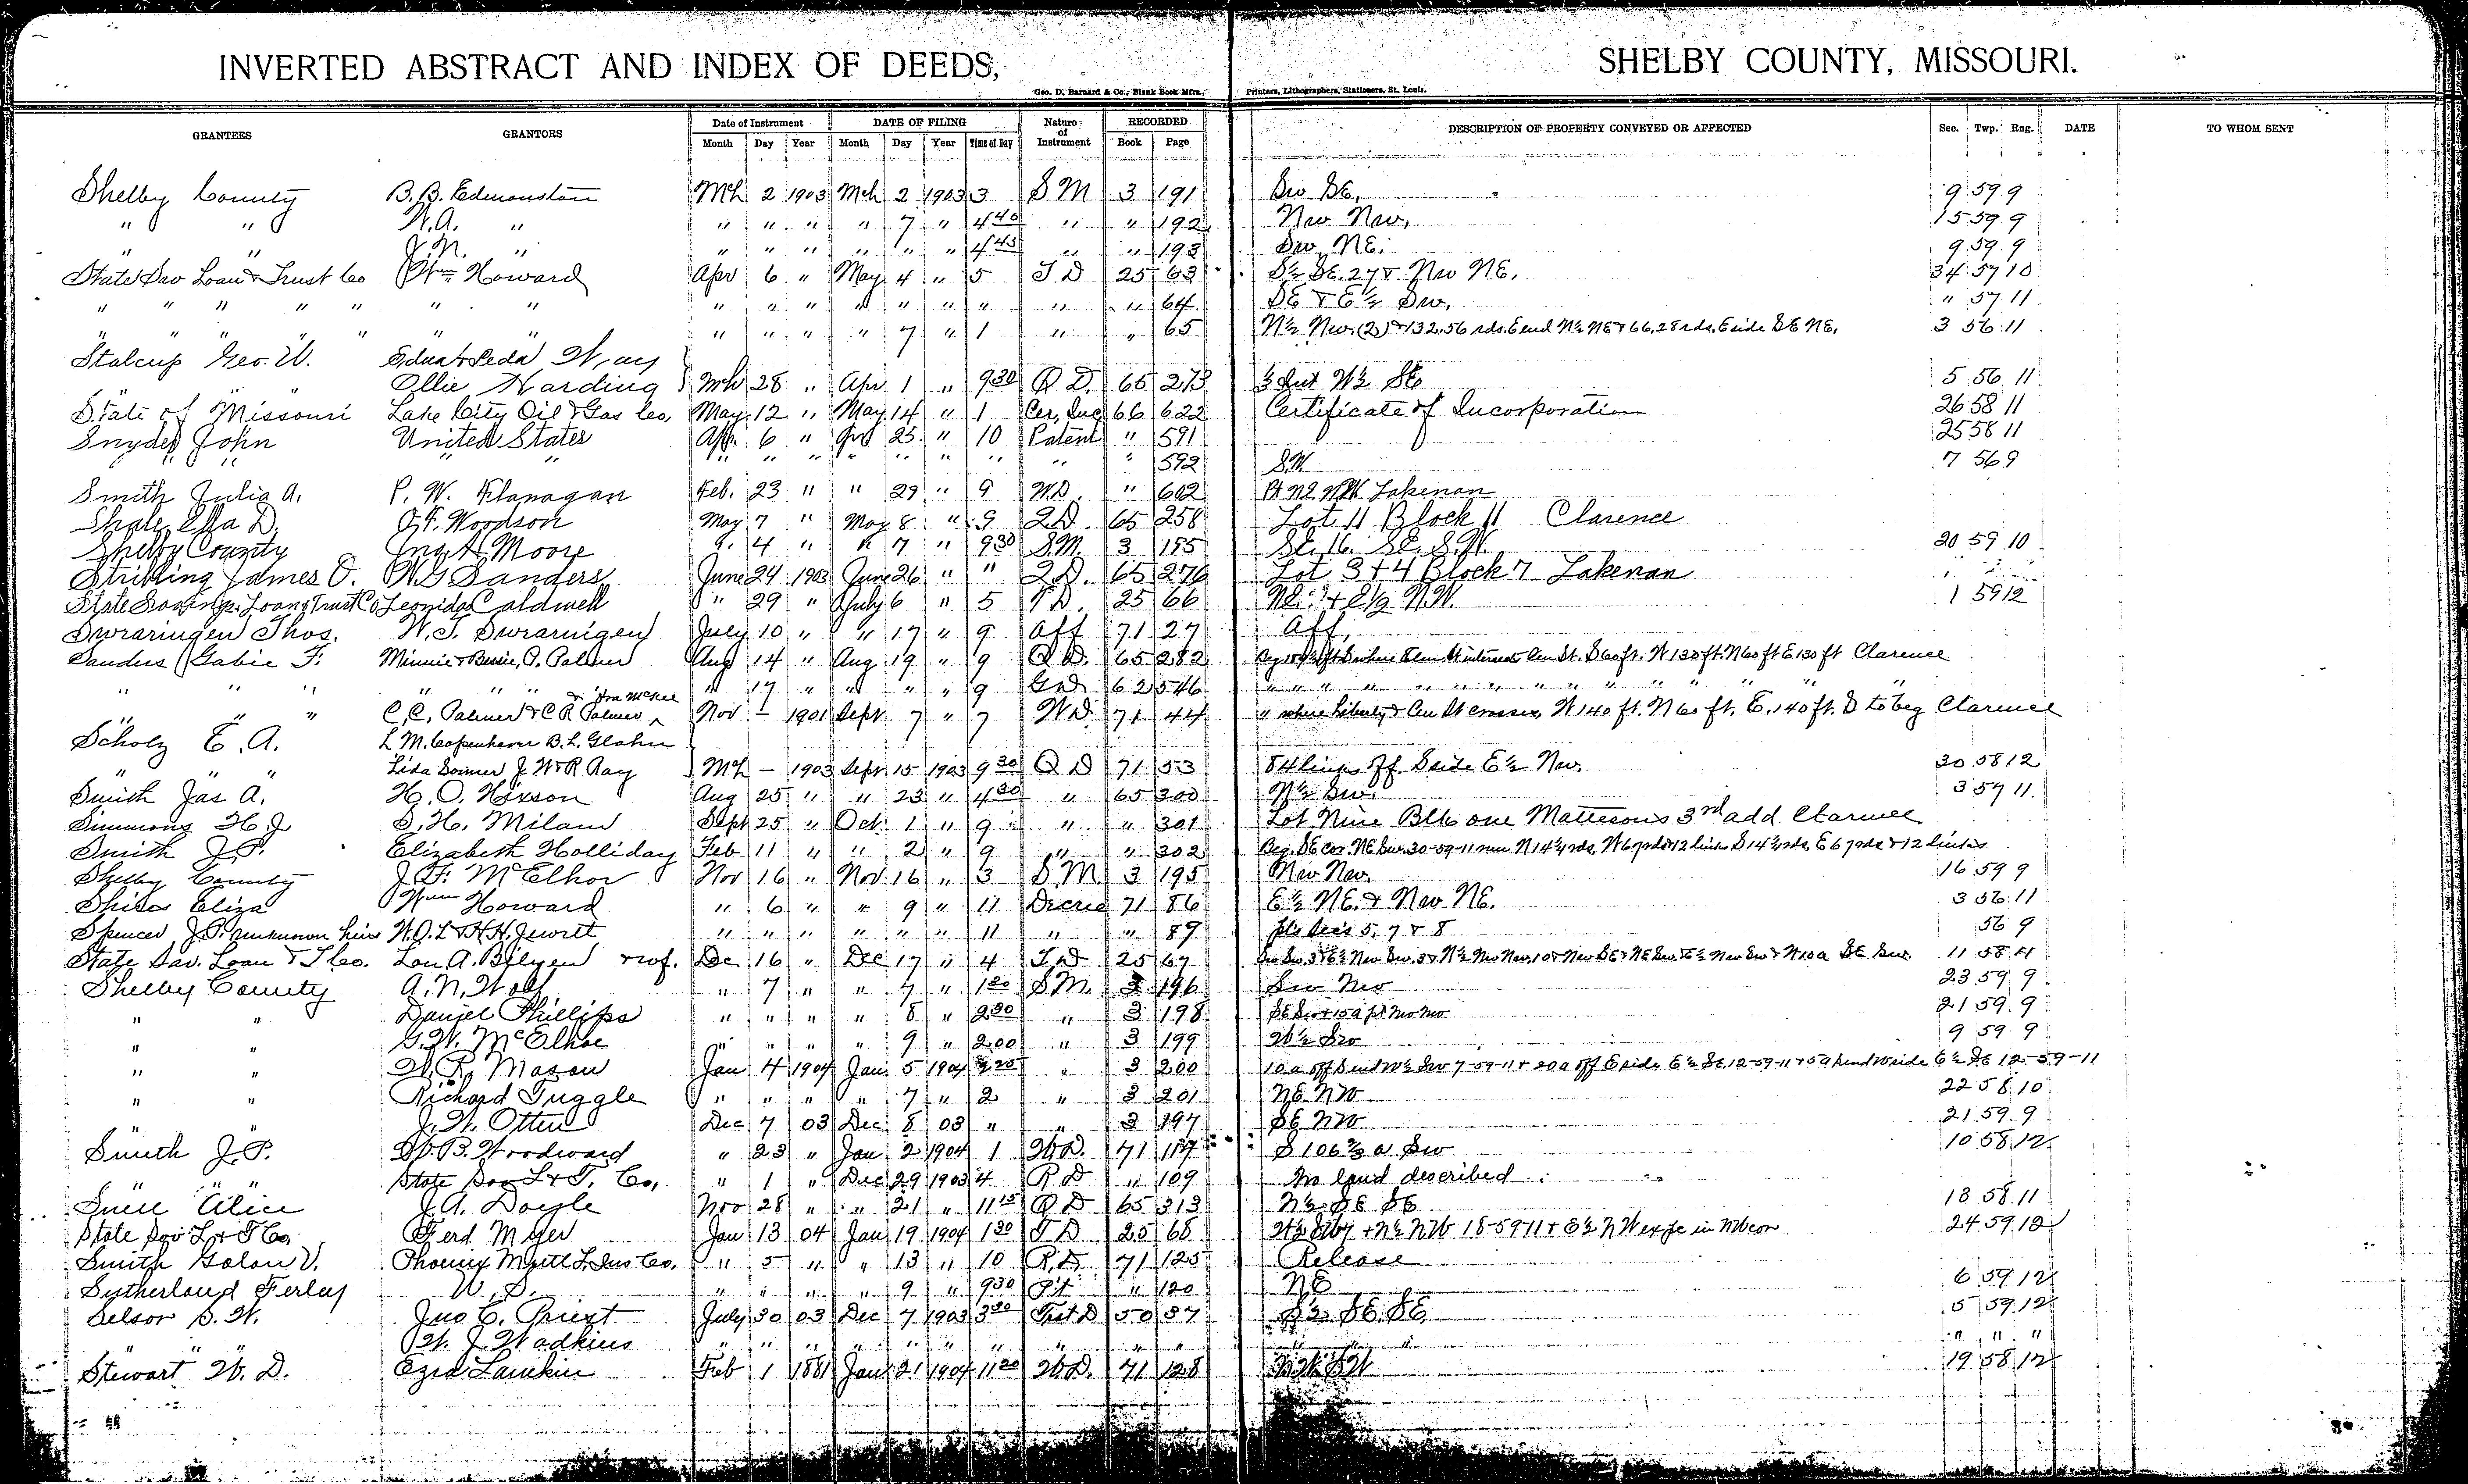 INVERTED ABSTRACT AND INDEX OF DEEDS, SHELBY COUNTY, MISSOURI.
Geo. D. Barnard & Co., Blank Book Mfrs., Printers, Lithographers, Stationers, St. Louis.
GRANTEES GRANTORS Date of Instrument DATE OF FILING Nature of Instrument RECORDED DESCRIPTION OF PROPERTY CONVEYED OR AFFECTED Sec. Twp. Rng. DATE TO WHOM SENT
Month Day Year Month Day Year Time of Day Book Page
Shelby County B. B. Edmonston Mch 2 1903 Mch 2 1903 3 S M 3 191 Sw SE, 9 59 9
" " W. A. " " " " " 7 " 4 40 " " 192 Nw Nw, 15 59 9
" " J. N. " " " " " " " 4 45 " " 193 Sw NE. 9 59 9
State Sav Loan & Trust Co Wm Howard Apr 6 " May 4 " 5 T D 25 63 S½ SE. 27 & Nw NE. 34 57 10
" " " " " " " " " " " " " " " 64 SE & E½ Sw. " 57 11
" " " " " " " " " " " 7 " 1 " " 65 N½ Nw. (2) & 132.56 rds. E end N½ NE & 66.28 rds. E side SE NE. 3 56 11
Stalcup Geo. W. Edna & Leda Way
Ollie Harding Mch 28 " Apr 1 " 9 30 Q D. 65 273 ⅓ Int W½ SE 5 56 11
State of Missouri Lake City Oil & Gas Co, May 12 " May 14 " 1 Cer, Inc 66 622 Certificate of Incorporation 26 58 11
Snyder John United States Apr. 6 " 25 " 10 Patent " 591 25 58 11
" " " " " " " " " " " " 592 S.W. 7 56 9
Smith Julia A. P. W. Flanagan Feb. 23 " " 29 " 9 W.D. " 602 Pt NE NW Lakenan
Ella D. J. F. Woodson May 7 " May 8 " 9 Q.D. 65 258 Lot 11 Block 11 Clarence
Shelby County Jno A. Moore " 4 " " 7 " 9 30 S.M. 3 155 SE. 16. SE. S.W. 20 59 10
Stribling James O. W. G. Sanders June 24 1903 June 26 " " Q.D. 65 276 Lot 3 & 4 Block 7 Lakenan
State Savings Loan & Trust Co Leonidas Caldwell " 29 " July 6 " 5 T D. 25 66 NE. & E½ N.W. 1 59 12
Swraringen Thos. W. T. Swraringen July 10 " " 17 " 9 Aff 71 27 Aff.
Sanders Gabie F. Minnie & Bessie, P. Palmer Aug 14 " Aug 19 " 9 Q D. 65 282 S 60 ft. W 130 ft. N 60 ft E 130 ft Clarence
" " " " " " & Ira McKee " 17 " " " " 9 62 546 " " " " " " " "
" " " C. C. Palmer & C R Palmer Nov - 1901 Sept 7 " 7 W D. 71 44 " where Liberty & Cen St crosses, W 140 ft. N 60 ft. E. 140 ft. S to beg Clarence
Scholz E. A. L M. Copenhaver B. L. Glahn
" " " Lida J. W & R Ray Mch - 1903 Sept 15 1903 9 30 Q D 71 53 84 links off S side E½ Nw. 30 58 12
Smith Jas A. H. O. Hixson Aug 25 " " 23 " 4 30 " 65 300 N½ Sw. 3 57 11
Simmons H. J S. H. Milam Sept 25 " Oct 1 " 9 " " 301 Lot Nine Blk one Mattesons 3rd add Clarence
Smith J. P. Elizabeth Holliday Feb 11 " " 2 " 9 " " 302 Beg. SE cor. NE Sw. 30-59-11 run N 14¼ rds, W 67 rds & 12 links S 14¼ rds, E 67 rds & 12 links
Shelby County J. F. McElhoe Nov 16 " Nov 16 " 3 S.M 3 195 Nw Nw. 16 59 9
Eliza Wm Howard " 6 " " 9 " 11 Decree 71 86 E½ NE. & Nw NE. 3 56 11
Spencer J. P. unknown heirs W. O. L & H. H. Jewett " " " " " " 11 " " 89 pts Secs 5, 7 & 8 56 9
State Sav. Loan & T Co. Lou A. Bilyeu & wf. Dec 16 " Dec 17 " 4 T D 25 67 11 58 11
Shelby County A. N. Wolf " 7 " " 7 " 1 30 S M. 3 196 Sw Nw 23 59 9
" " Daniel Phillips " " " " 8 " 2 30 " 3 198 SE Sw & 15 a pt Nw Nw 21 59 9
" " G. W. McElhoe " " " " 9 " 2.00 " 3 199 W½ Sw 9 59 9
" " W. R. Mason Jan 4 1904 Jan 5 1904 " 3 200 10 a off S end W½ Sw 7-59-11 & 20 a off E side E½ SE. 12-59-11 & 5 a S end W side E½ SE 12-59-11
" " Richard Tuggle " " " " 7 " 2 " 3 201 NE NW 22 58 10
" " J. W. Otten Dec 7 03 Dec 8 03 " " 3 197 SE NW 21 59 9
Smith J. P. W. B. Woodward " 23 " Jan 2 1904 1 W D. 71 117 S 106⅔ a Sw 10 58 12
" " State Sav L & T. Co, " 1 " Dec 29 1903 4 R D " 109 No land described
Alice J. A. Doyle Nov 28 " " 21 " 11 15 Q D 65 313 N½ SE SE 18 58 11
State Sav L & T Co, Ferd Myer Jan 13 04 Jan 19 1904 1 30 T D 25 68 & N½ NW 18-59-11 & E½ NW 24 59 12
Smith Golan V. Phoenix Mutl L. Ins Co. " 5 " " 13 " 10 R. D. 71 125 Release
Sutherland Ferley U. S. " " " " 9 " 9 30 Pt " 120 NE 6 59 12
Selsor S. W. Jno C. Priest July 30 03 Dec 7 1903 3 30 Trst D 50 87 S½ SE SE 5 59 12
W. J. Wadkins " " " " " " " " " " " " "
Stewart W. D. Ezra Lamkin Feb 1 1881 Jan 21 1904 11 20 W D. 71 128 19 58 12